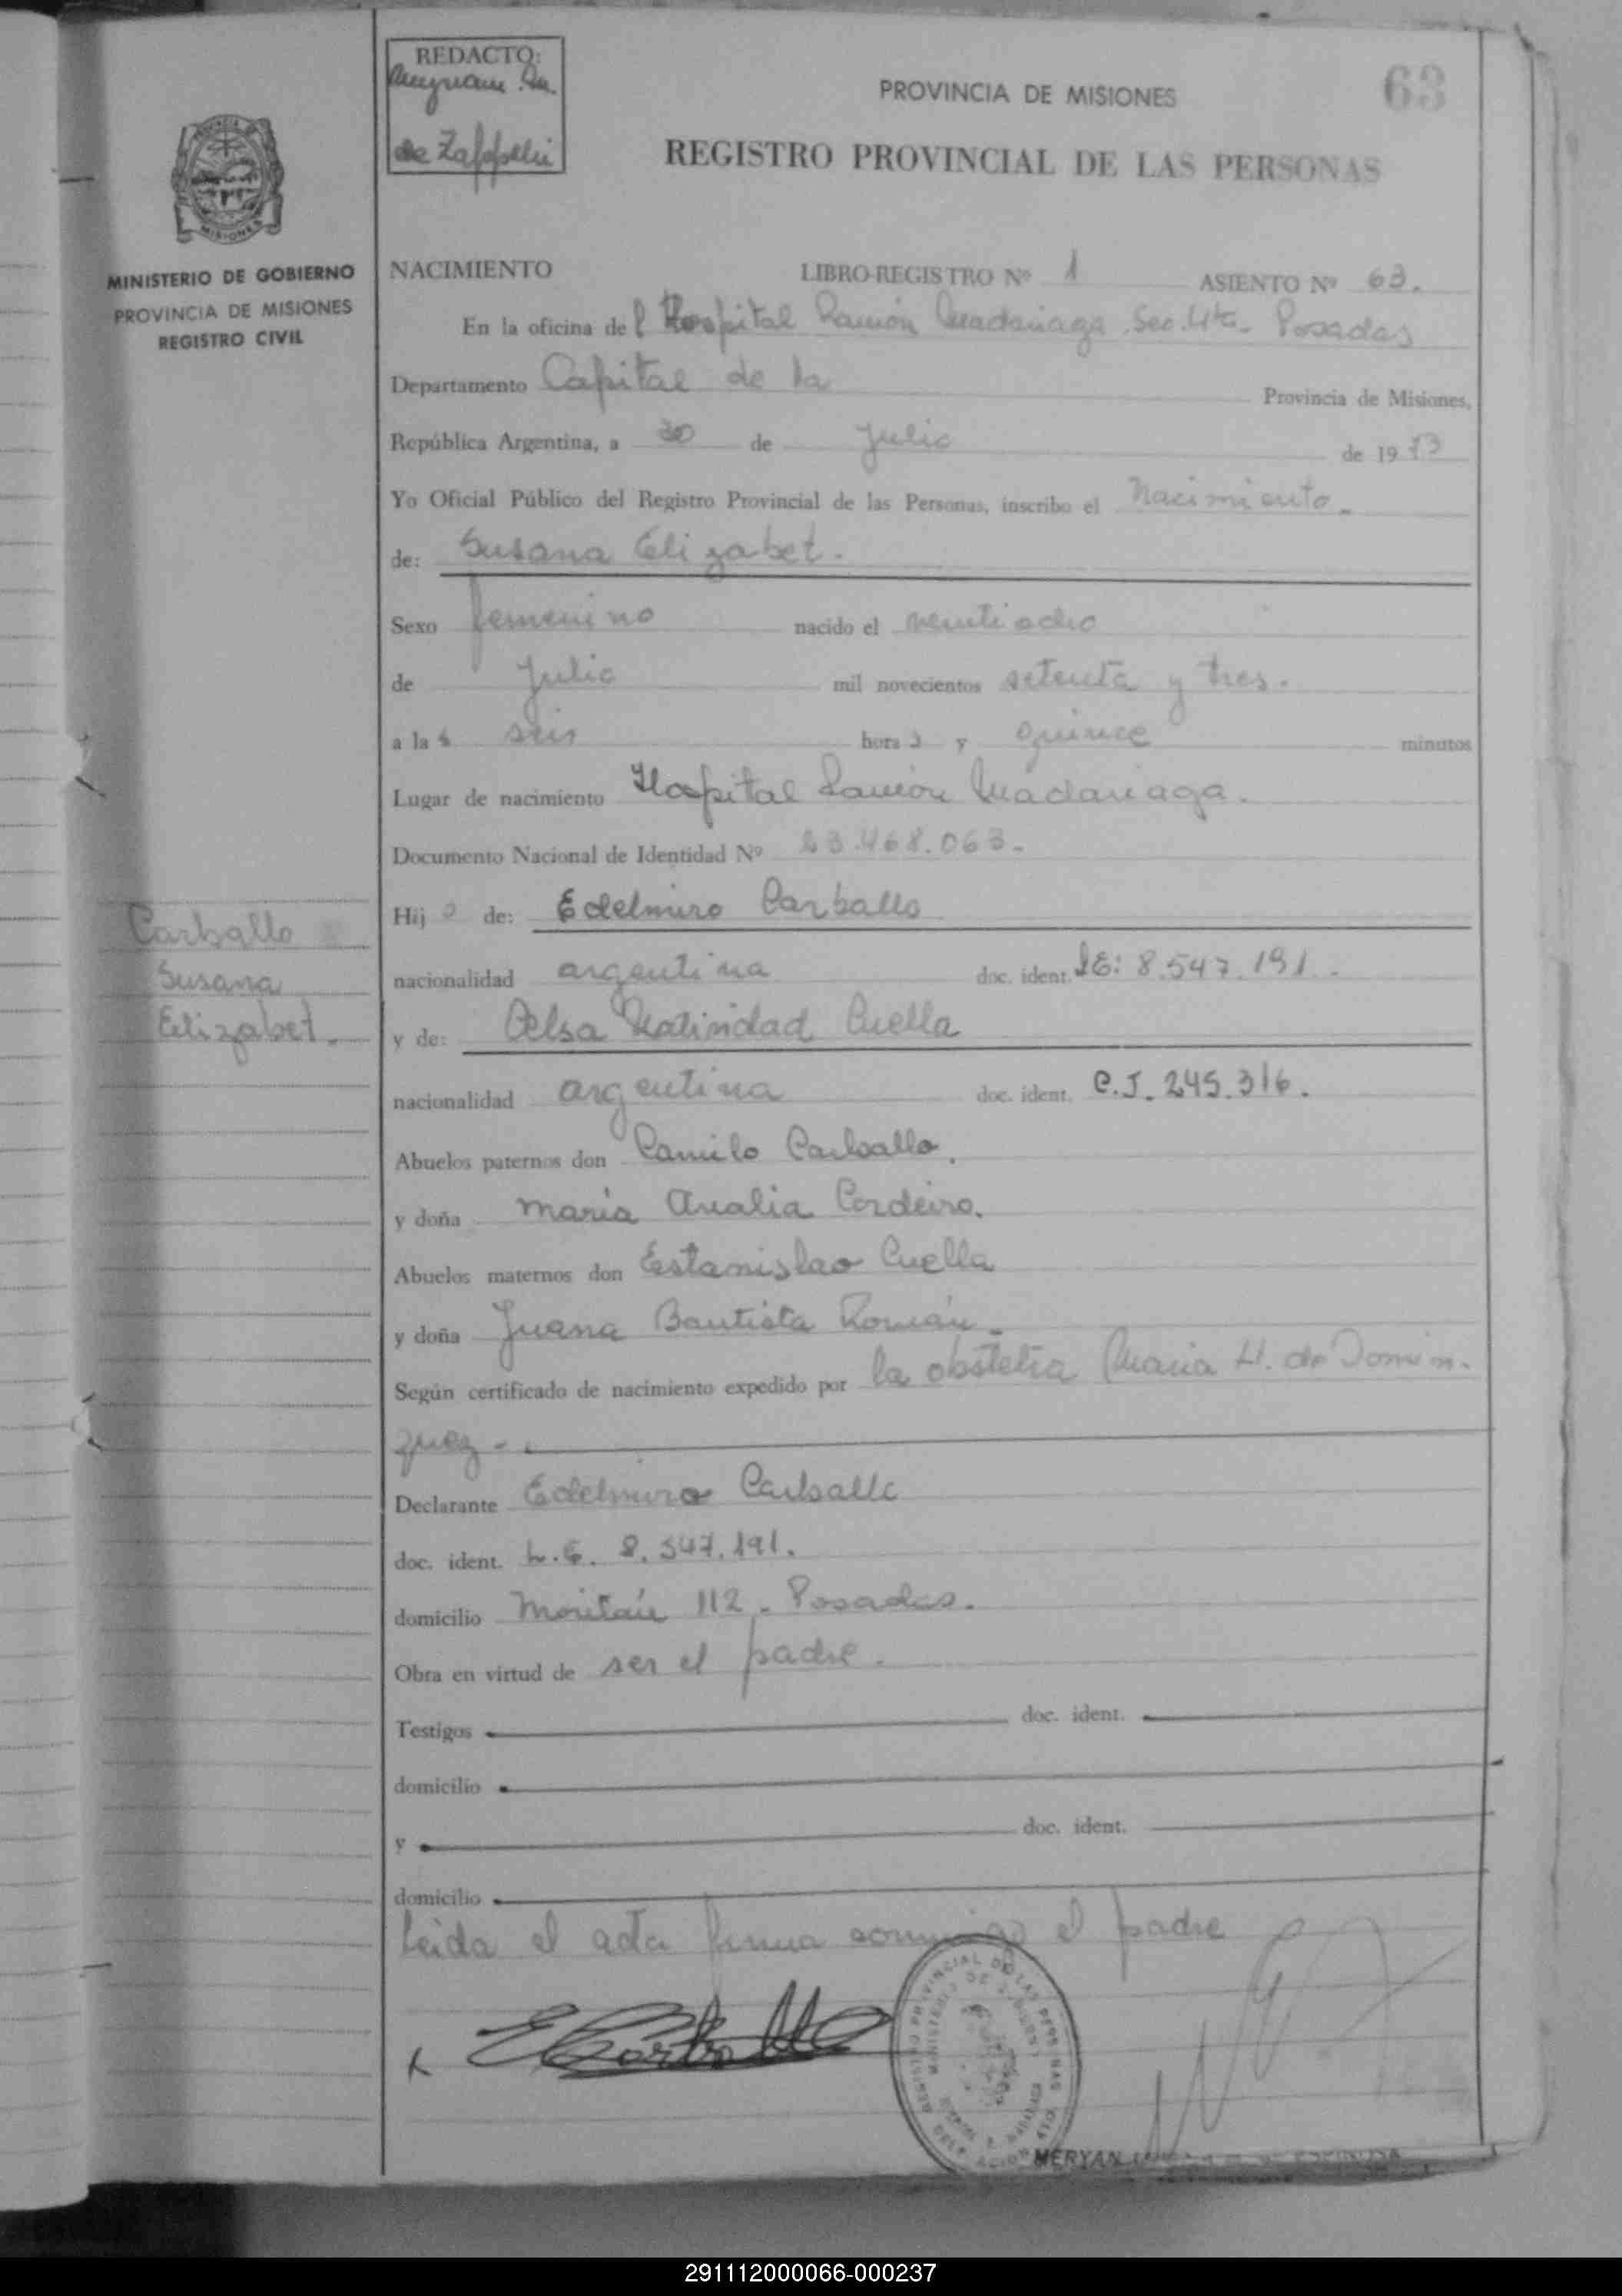 REDACTO:
de Zappelli
PROVINCIA DE MISIONES
63
REGISTRO PROVINCIAL DE LAS PERSONAS
MISIONES
MINISTERIO DE GOBIERNO
PROVINCIA DE MISIONES
REGISTRO CIVIL
NACIMIENTO LIBRO-REGISTRO Nº 1 ASIENTO Nº 63.
En la oficina del Hospital Ramón Madariaga Sec. 4ta. Posadas
Departamento Capital de la Provincia de Misiones,
República Argentina, a 30 de Julio de 1973
Yo Oficial Público del Registro Provincial de las Personas, inscribo el Nacimiento.
de: Susana Elizabet.
Sexo femenino nacido el veintiocho
de Julio mil novecientos setenta y tres.
a las seis horas y quince minutos
Lugar de nacimiento Hospital Ramón Madariaga.
Documento Nacional de Identidad Nº 23.468.063.
Carballo
Susana
Elizabet.
Hijo de: Edelmiro Carballo
nacionalidad argentina doc. ident. LE: 8.547.191.
y de: Celsa Natividad Cuella
nacionalidad argentina doc. ident. C.I. 245.316.
Abuelos paternos don Camilo Carballo.
y doña María Analia Cordeiro.
Abuelos maternos don Estanislao Cuella
y doña Juana Bautista Román.
Según certificado de nacimiento expedido por la obstetra Maria H. de Domin-
guez -.
Declarante Edelmiro Carballo
doc. ident. L.E. 8.547.191.
domicilio 112 - Posadas.
Obra en virtud de ser el padre.
Testigos doc. ident.
domicilio
y doc. ident.
domicilio
Leida el acta firma conmigo el padre
E Carballo
REGISTRO PROVINCIAL DE LAS PERSONAS
MERYAN
291112000066-000237